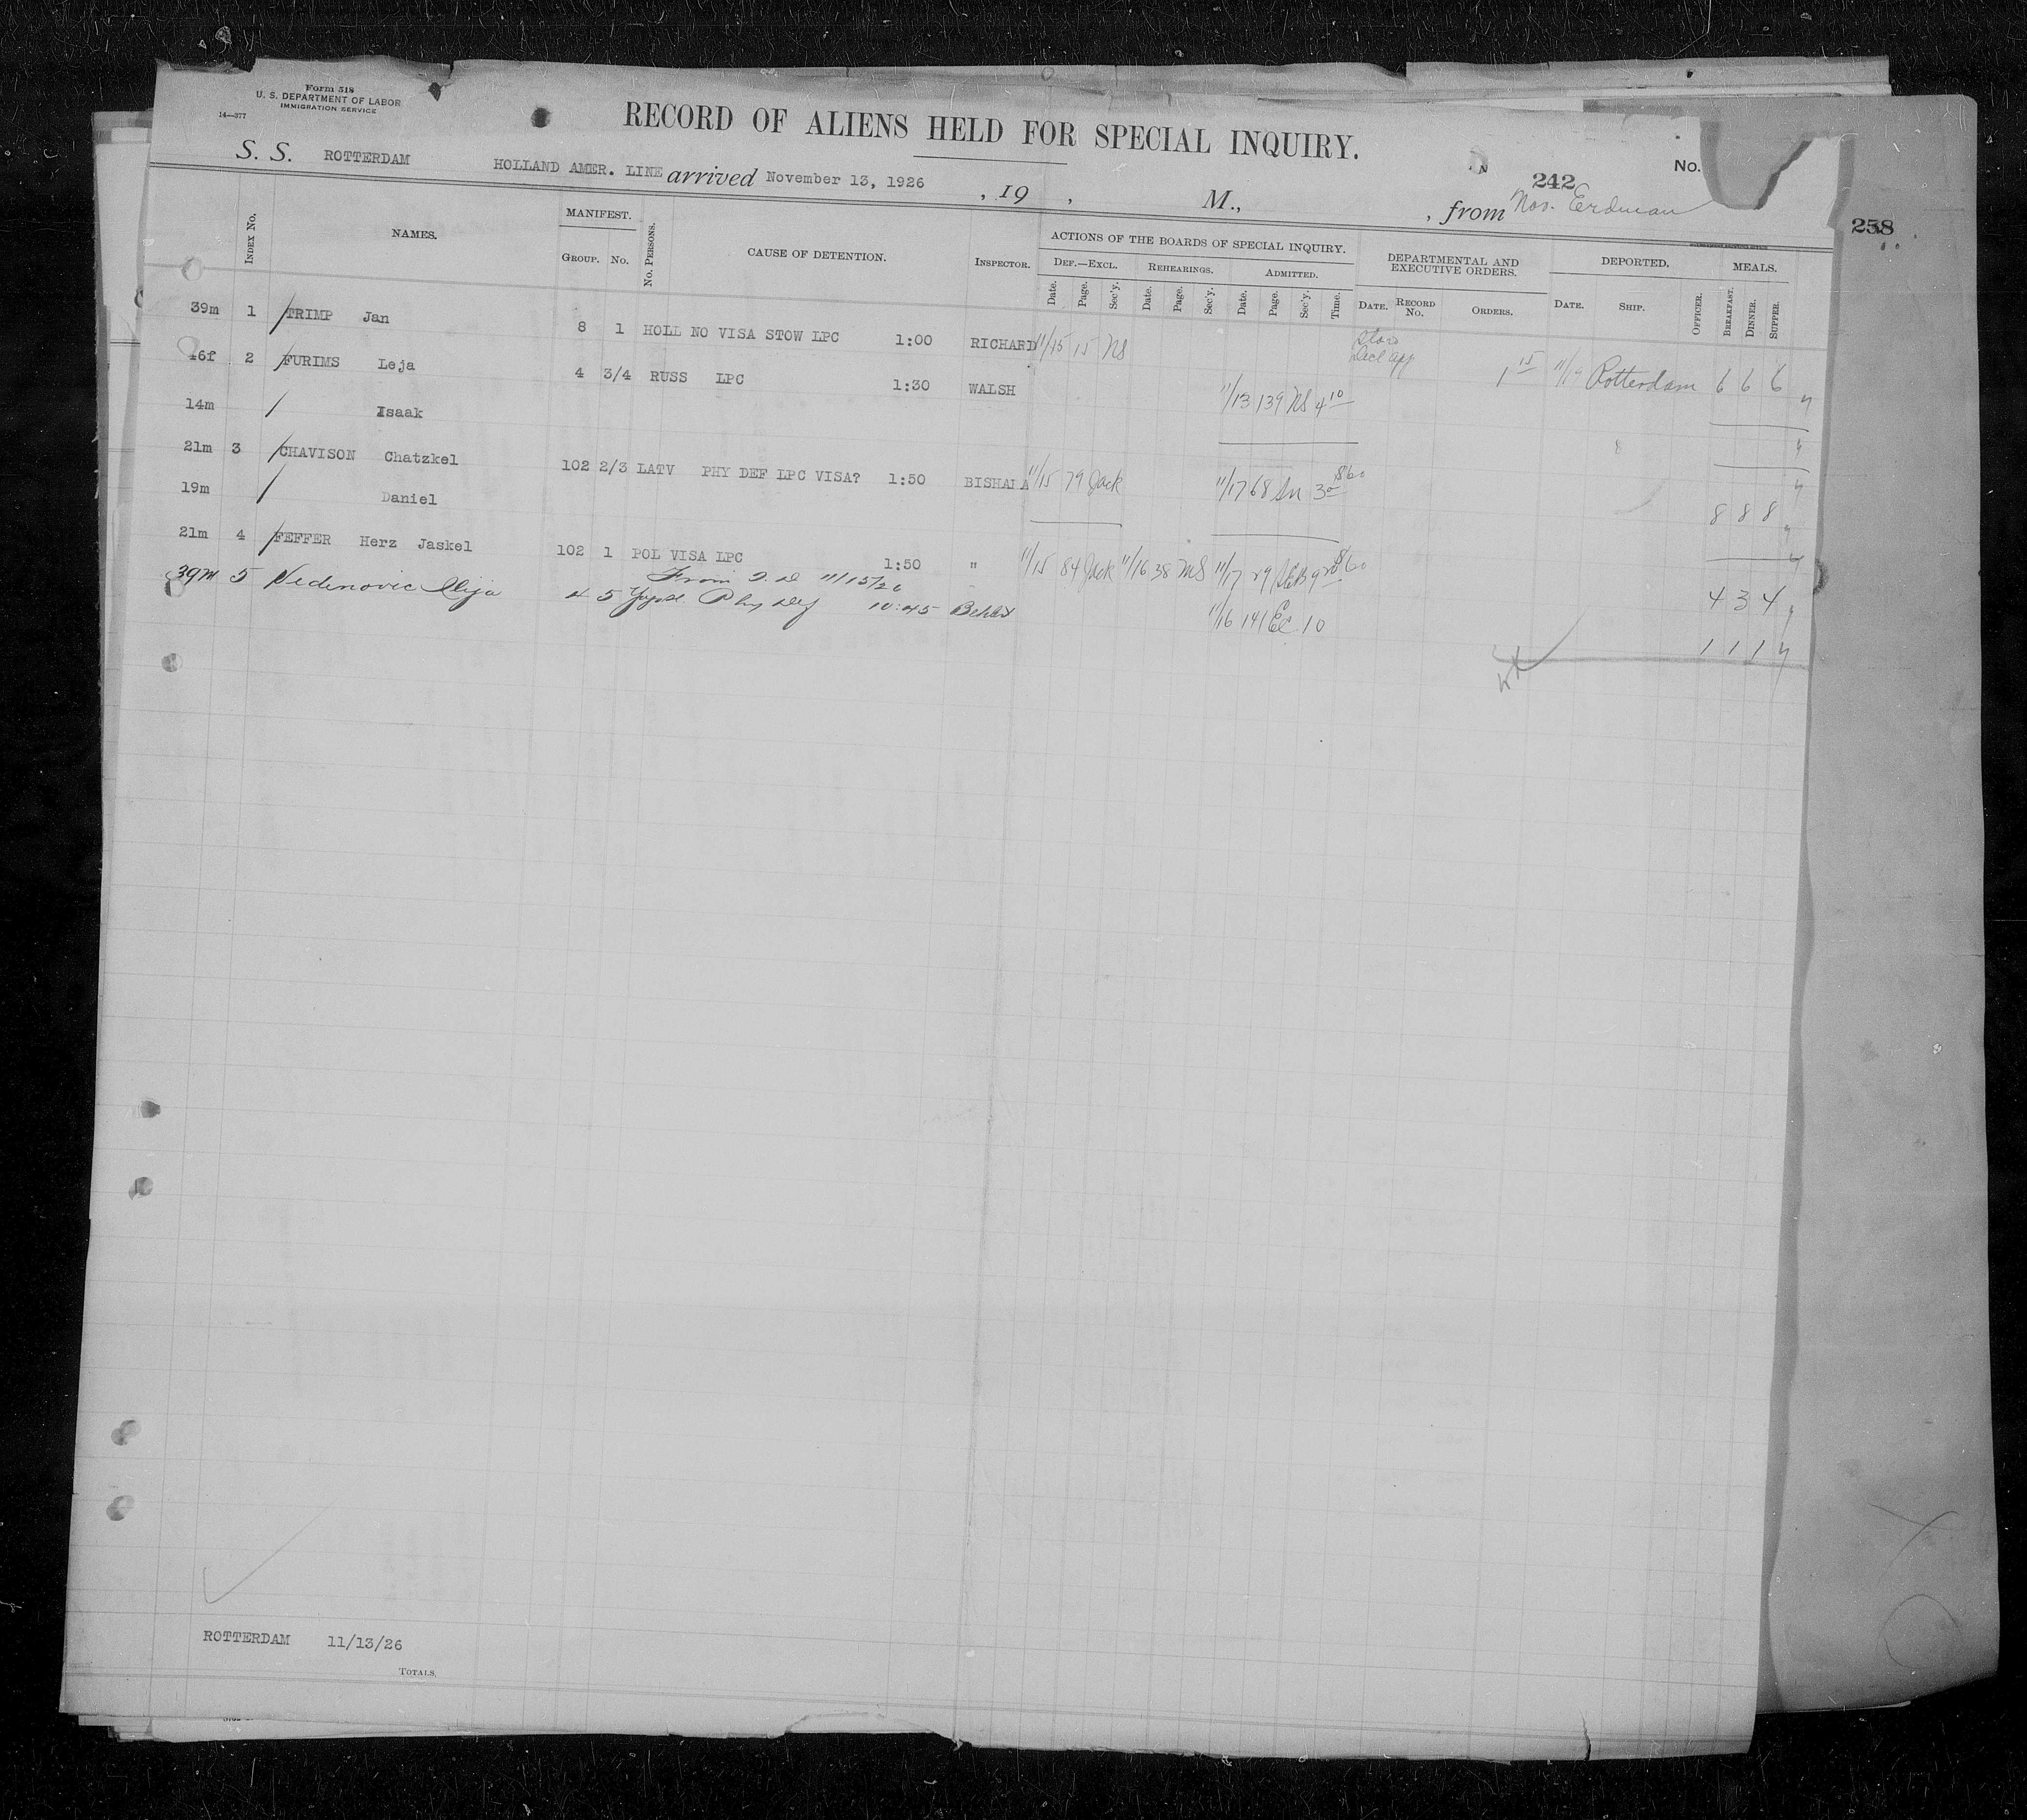 Form 518
U. S. DEPARTMENT OF LABOR
IMMIGRATION SERVICE
14—377
RECORD OF ALIENS HELD FOR SPECIAL INQUIRY.
No.
242
S. S. ROTTERDAM HOLLAND AMER. LINE arrived November 13, 1926 , 19 , M., , from Nos. Erdman
258
INDEX No. NAMES. MANIFEST. GROUP. No. No. PERSONS. CAUSE OF DETENTION. INSPECTOR. ACTIONS OF THE BOARDS OF SPECIAL INQUIRY. DEPARTMENTAL AND EXECUTIVE ORDERS. DEPORTED. MEALS.
DEF.—EXCL. REHEARINGS. ADMITTED.
Date. Page. Sec'y. Date. Page. Sec'y. Date. Page. Sec'y. Time. DATE. RECORD No. ORDERS. DATE. SHIP. OFFICER. BREAKFAST. DINNER. SUPPER.
39m 1 TRIMP Jan 8 1 HOLL NO VISA STOW LPC 1:00 RICHARD 11/15 15 NS 1 15 11/19 Rotterdam 6 6 6
46f 2 FURIMS Leja 4 3/4 RUSS LPC 1:30 WALSH 11/13 139 NS 4 10
14m Isaak
21m 3 CHAVISON Chatzkel 102 2/3 LATV PHY DEF LPC VISA? 1:50 BISHALA 11/15 79 Jack 11/17 68 3 $60
19m Daniel 8 8 8
21m 4 FEFFER Herz Jaskel 102 1 POL VISA LPC 1:50 " 11/15 84 Jack 11/16 38 MS 11/17 29 $60
From 11/15/26
4 3 4
39m 5 Nedinovic Ilija 4 5 Phy Def 10:45 11/16 141 EC 10
1 1 1
ROTTERDAM 11/13/26
TOTALS.